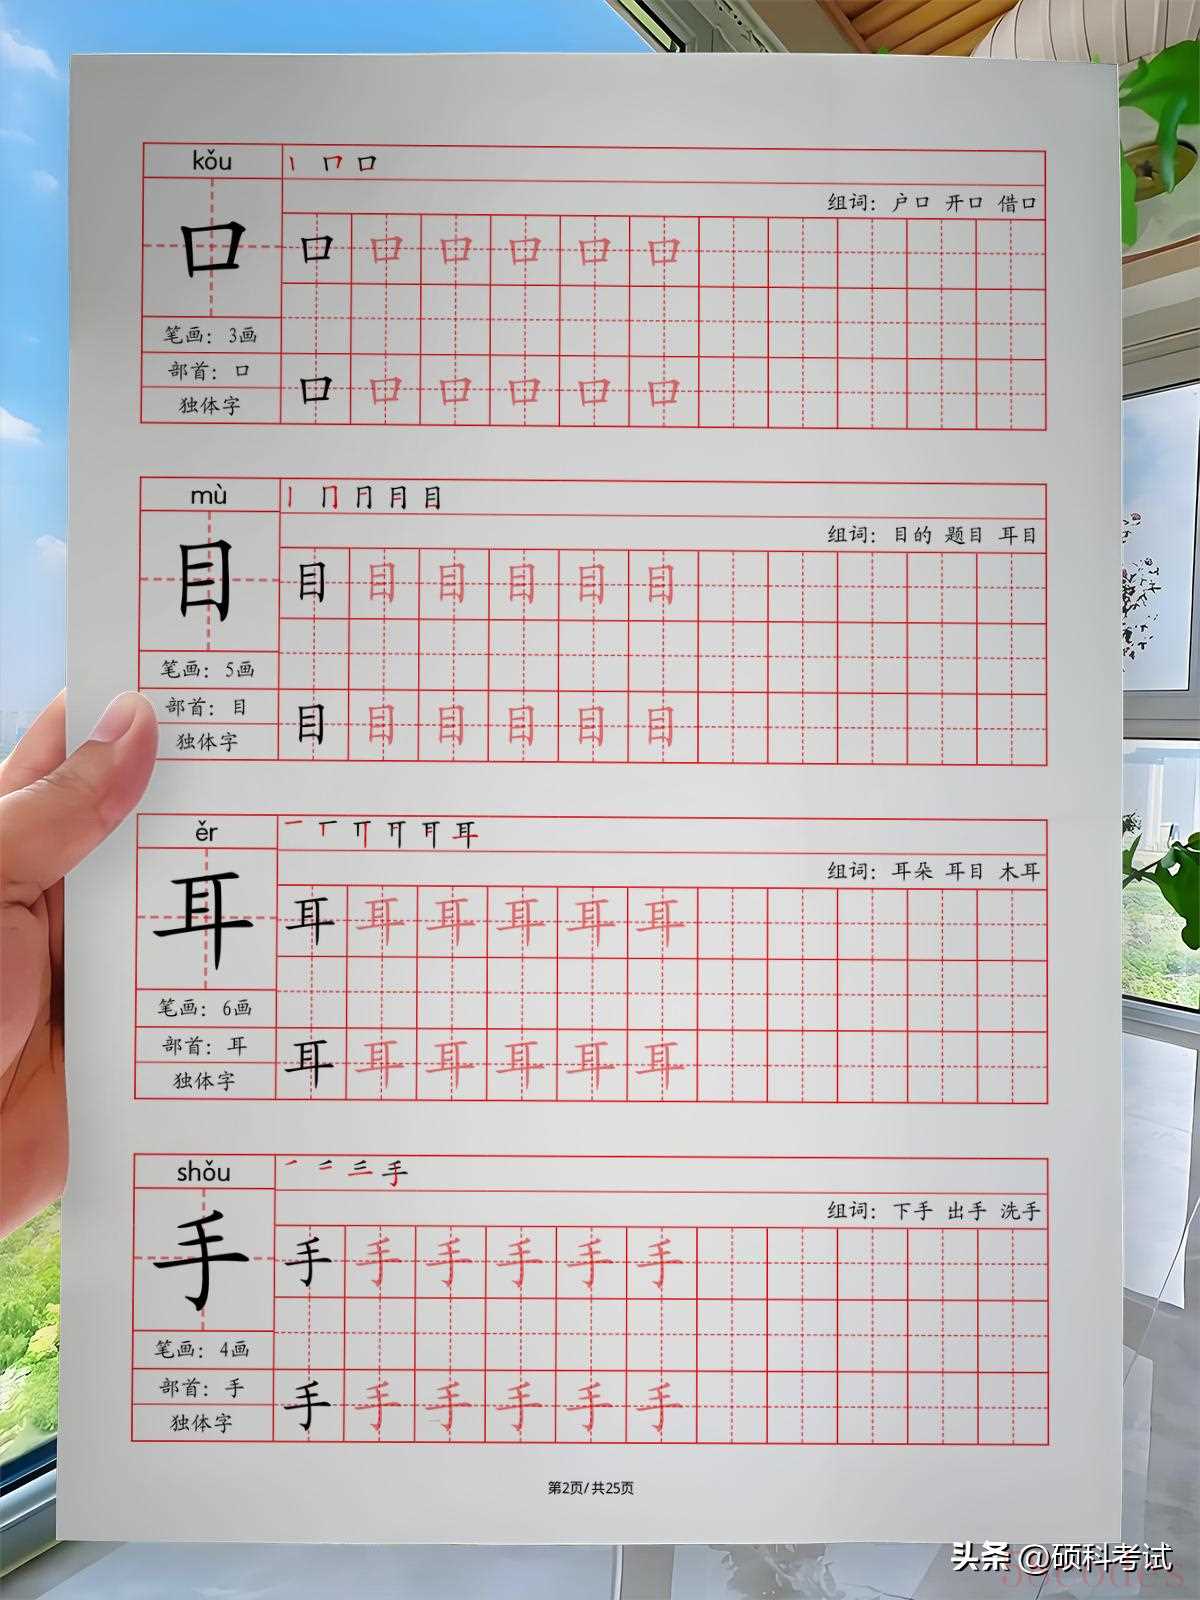 kǒu
丨 𠃍 口
组词：户口 开口 借口
口
口 口 口 口 口 口
笔画：3画
部首：口
独体字
口 口 口 口 口 口
mù
目
组词：目的 题目 耳目
目
目 目 目 目 目 目
笔画：5画
部首：目
独体字
目 目 目 目 目 目
ěr
耳
组词：耳朵 耳目 木耳
耳
耳 耳 耳 耳 耳 耳
笔画：6画
部首：耳
独体字
耳 耳 耳 耳 耳 耳
shǒu
手
组词：下手 出手 洗手
手
手 手 手 手 手 手
笔画：4画
部首：手
独体字
手 手 手 手 手 手
第2页/共25页
头条 @硕科考试